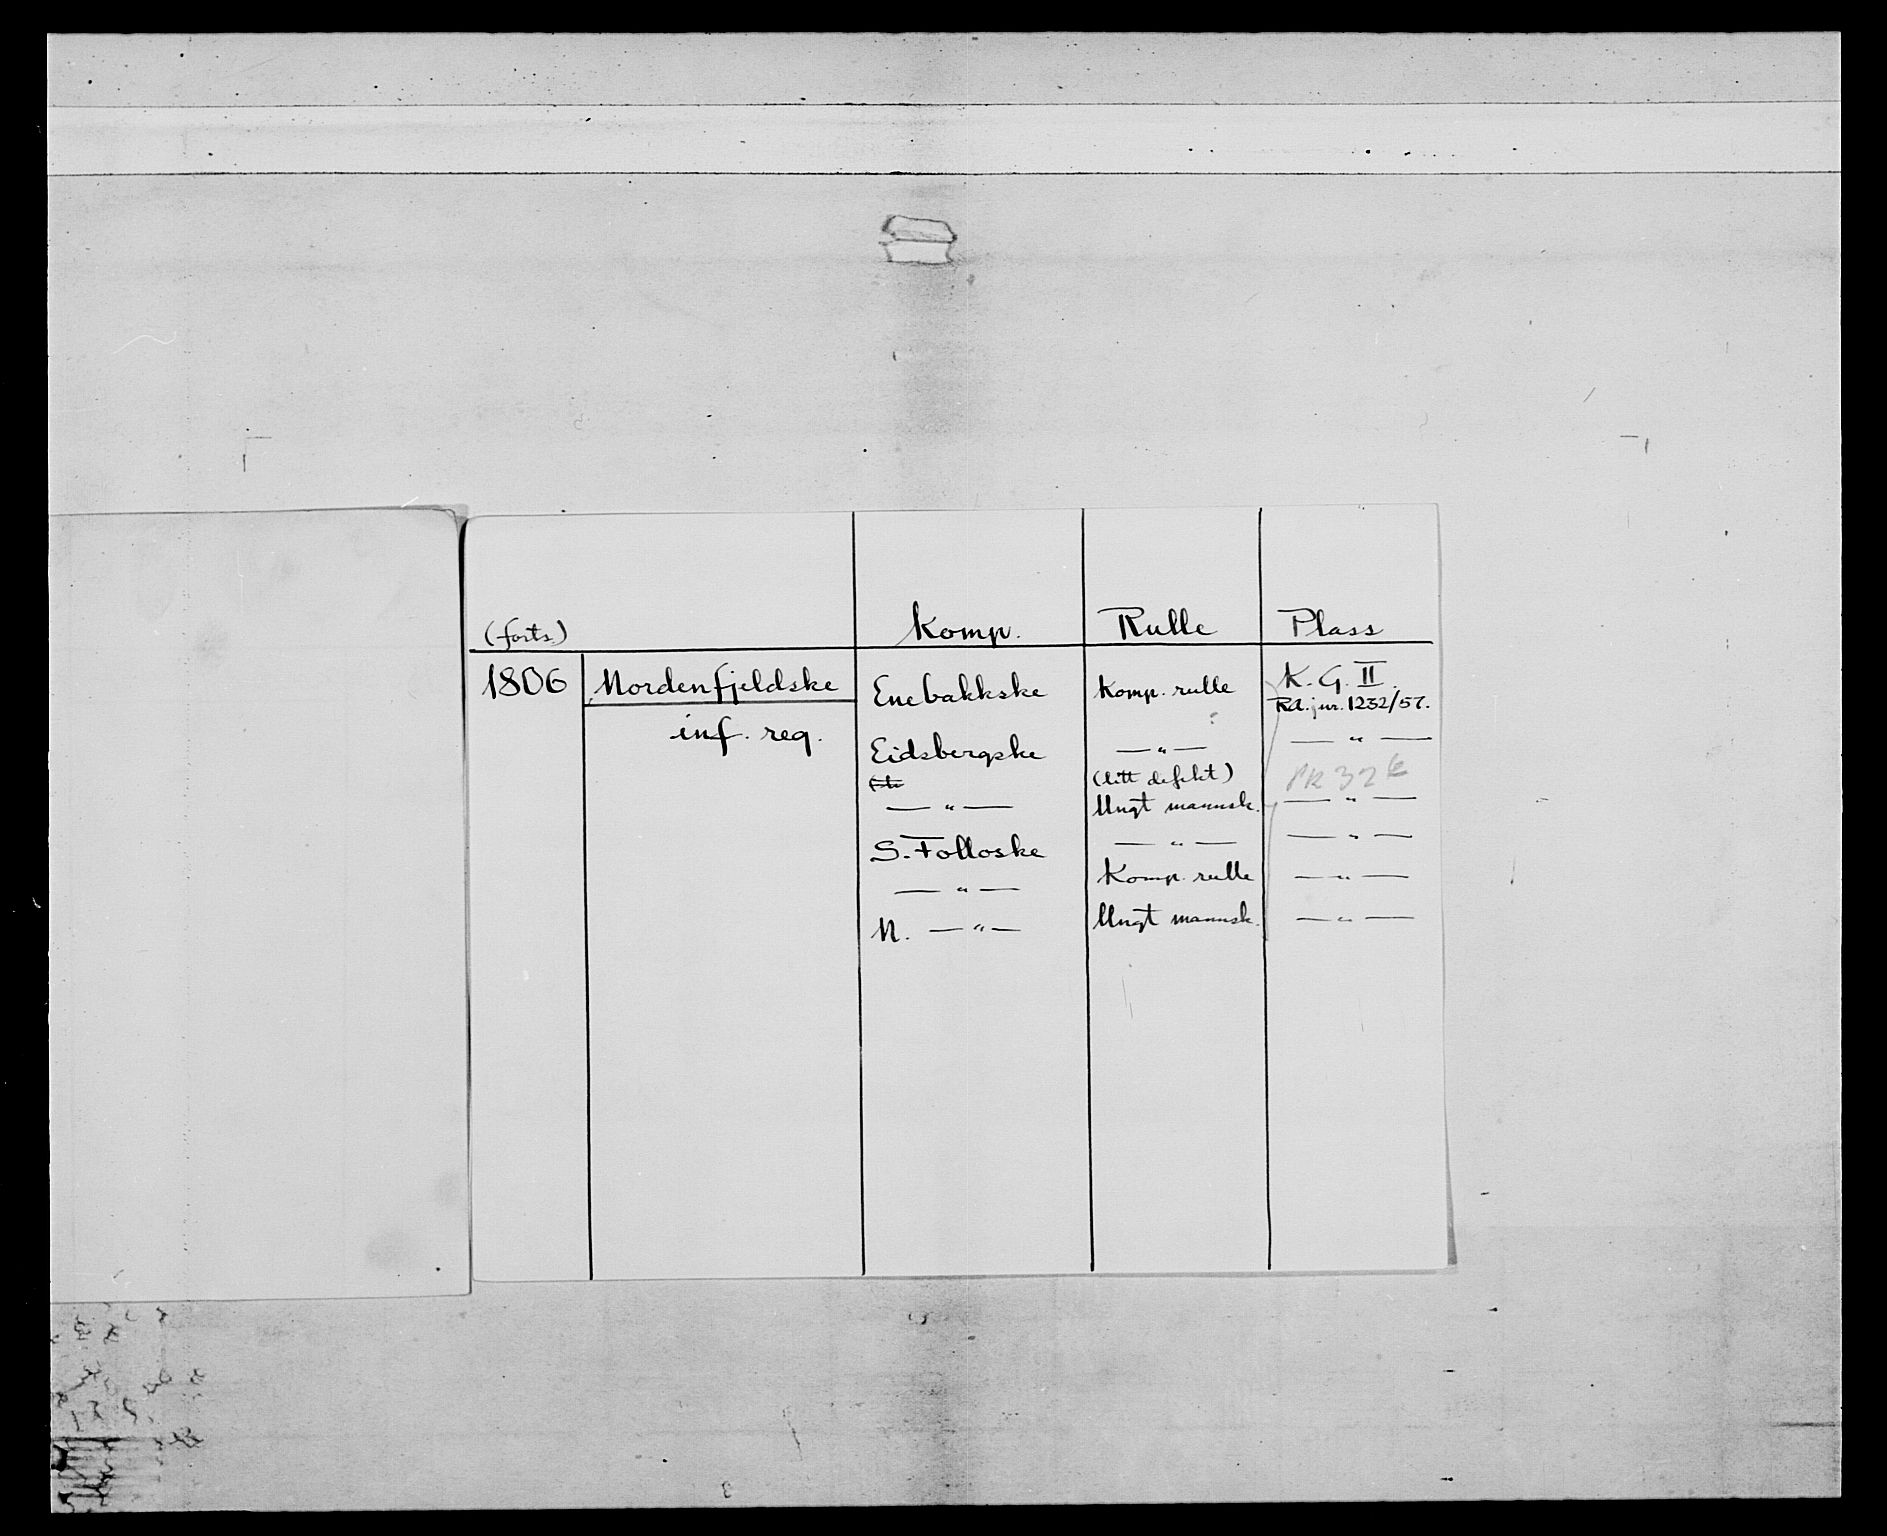 (forts.) Komp. Rulle Plass
1806 Nordenfjeldske Enebakkske Komp. rulle K. G. II.
RA. jnr. 1232/57.
inf. reg. Eidsbergske — " — — " —
(litt defekt) PK 32
— " — Ungt mannsk. — " —
S. Folloske — " — — " —
— " — Komp. rulle — " —
N. — " — Ungt mannsk. — " —